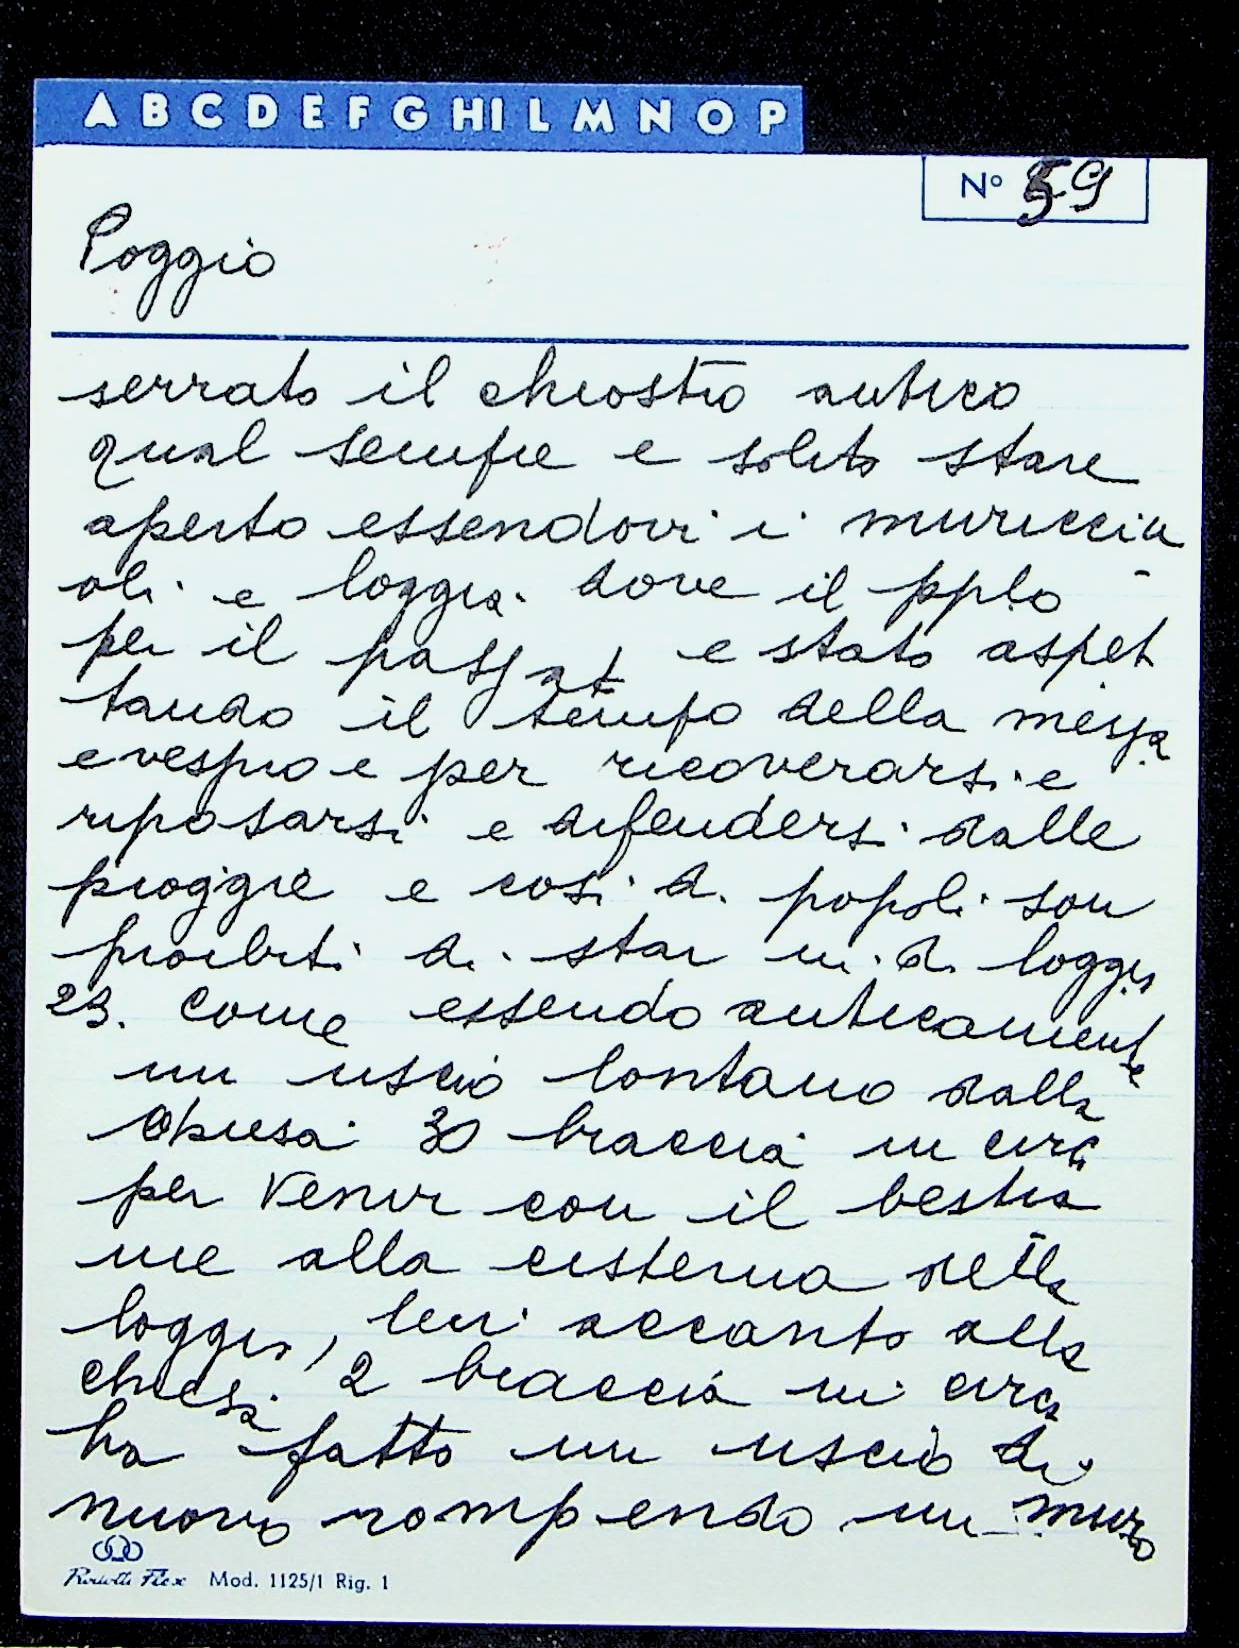 A B C D E F G HI L M N O P
Nº 59
Poggio
serrato il chiostro antico
qual sempre e solito stare
aperto essendovi i muricciu
oli e loggia dove il pplo
per il passat e stato aspet
tando il tempo della messa
e vespro e per ricoverarsi e
riposarsi e difendersi dalle
pioggie e così d. popoli son
proibiti di star in d. loggia
23. Come essendo anticamente
un uscio lontano dalla
Chiesa 30 braccia in circa
per venir con il bestia
me alla cisterna della
loggia, leri accanto alla
chiesa 2 braccia in circa
ha fatto un uscio di
nuovo rompendo un muro
Mod. 1125/1 Rig. 1